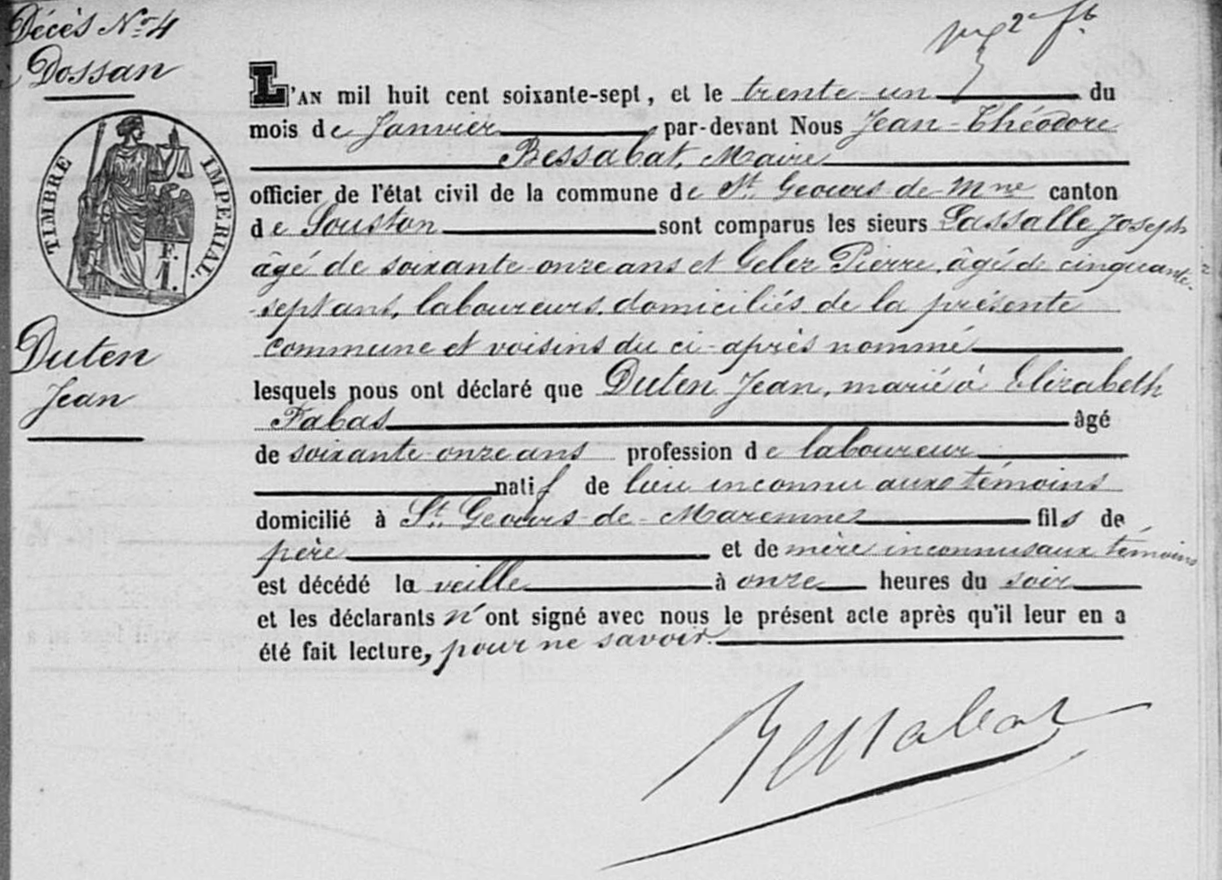 Décès No. 4
Dossan
L'AN mil huit cent soixante-sept, et le trente un du
mois de Janvier par-devant Nous Jean-Théodore
Bessabat, Maire
officier de l'état civil de la commune de St. Geours-de-Mne canton
de Souston sont comparus les sieurs Lassalle Joseph
âgé de soixante onze ans et Gelez Pierre, âgé de cinquante-
sept ans, laboureurs, domiciliés de la présente
commune et voisins du ci-après nommé
lesquels nous ont déclaré que Duten Jean, marié à Elizabeth
Fabas âgé
de soixante onze ans profession de laboureur
natif de lieu inconnu aux témoins
domicilié à St. Geours-de-Maremne fils de
père et de mère inconnus aux témoins
est décédé la veille à onze heures du soir
et les déclarants n'ont signé avec nous le présent acte après qu'il leur en a
été fait lecture, pour ne savoir.
TIMBRE IMPERIAL.
F. I.
Duten
Jean
Bessabat